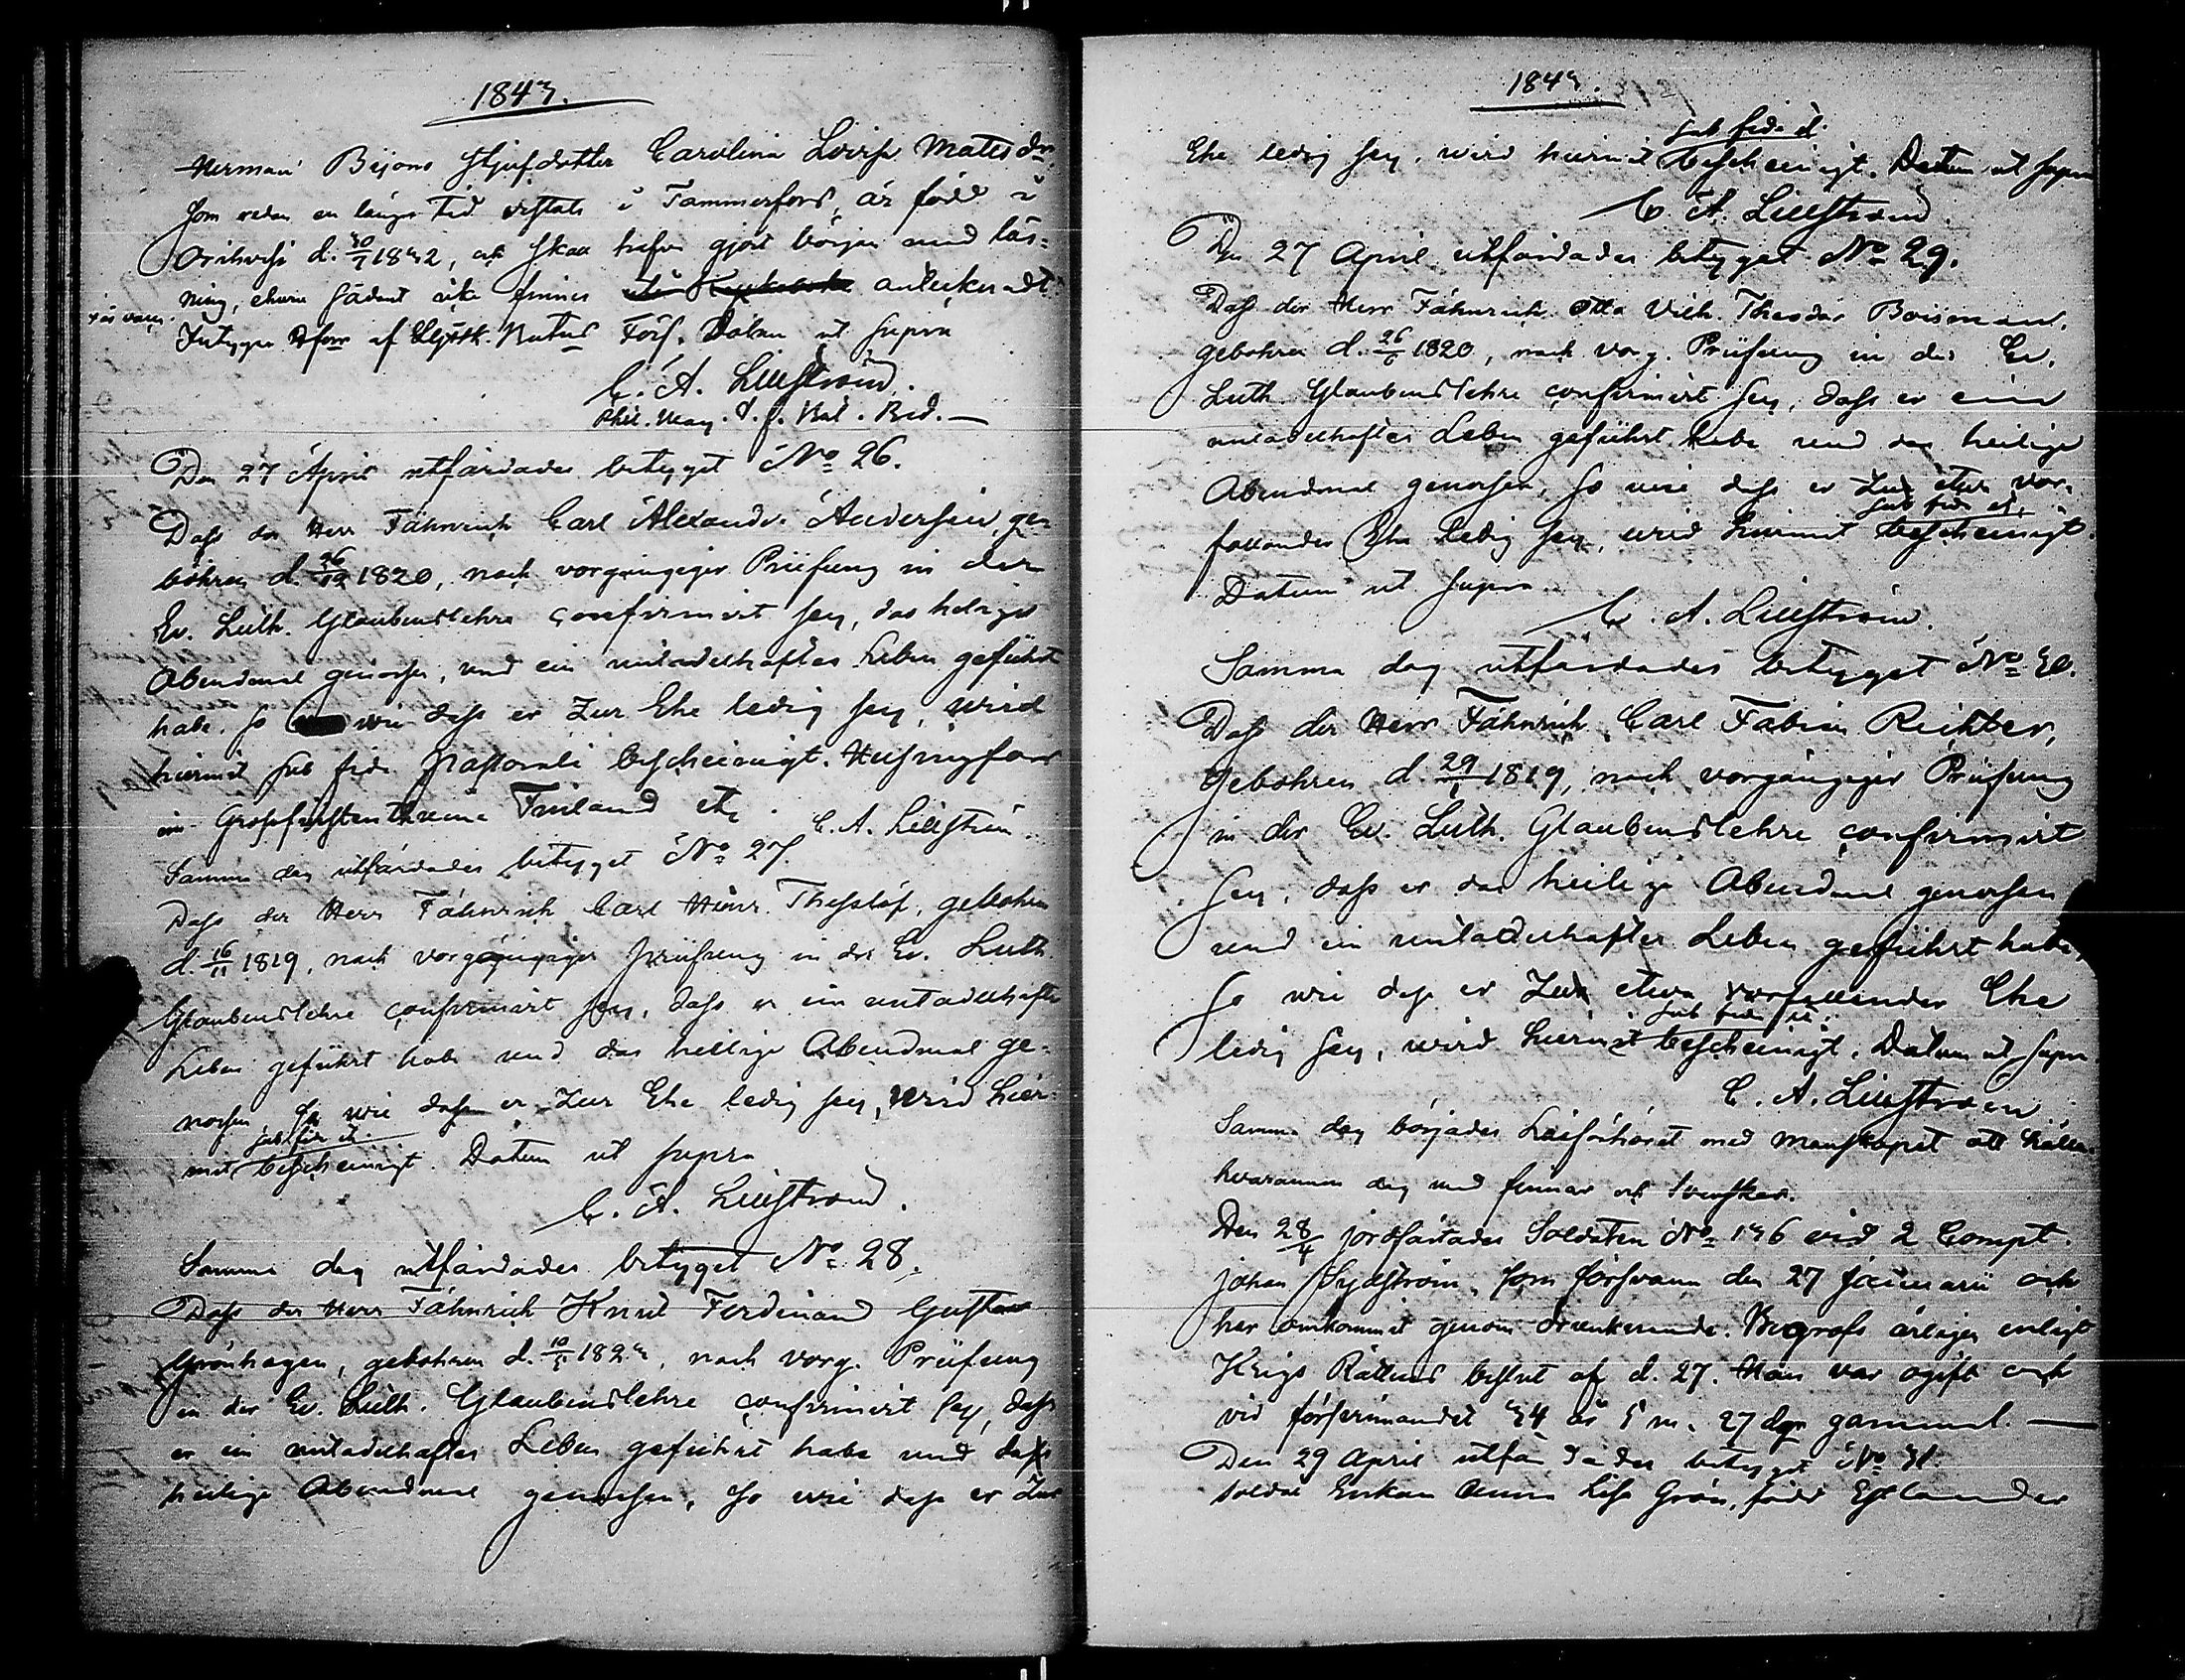 1843.
Herman Bijons Stjufdotter Carolina Lovisa Matsdr.
som redan en längre tid vistats i Tammerfors, är född i
Orihvesi d. 30/7 1832, och skall hafva gjort början med läs-
ning, ehuru sådant icke finnes antecknadt
Intygar Hfors af Skjutk. Natus Förs. Datum ut supra
C. A. Lillström.
Phil. Mag. V. f. Bat. Pred.
Den 27 April utfärdades betyget No 26.
Dass der Herr Fähnrich Carl Alexander Andersin, ge-
bohren d. 26/12 1820, nach vorgängiger Prüfung in der
Ev. Luth. Glaubenslehre confirmirt sey, das heilige
Abendmal genossen, und ein untadelhaftes Leben geführt
habe, so wie dass er zur Ehe ledig sey, wird
hiermit sub fide pastorali bescheinigt. Helsingfors
im Grossfürstenthume Finland etc.
C. A. Lillström.
Samma dag utfärdades betyget No 27.
Dass der Herr Fähnrich Carl Henr. Thesslöf, gebohren
d. 16/11 1819, nach vorgängiger Prüfung in der Ev. Luth.
Glaubenslehre confirmirt sey, dass er ein untadelhaftes
Leben geführt habe und das heilige Abendmal ge-
nossen so wie dass er zur Ehe ledig sey, wird hier-
sub fide etc.
mit bescheinigt. Datum ut supra
C. A. Lillström.
Samma dag utfärdades betyget No 28.
Dass der Herr Fähnrich Knut Ferdinand Gustav
Grönhagen, gebohren d. 10/5 1823, nach vorg. Prüfung
in der Ev. Luth. Glaubenslehre confirmirt sey, dass
er ein untadelhaftes Leben geführt habe und das
heilige Abendmal genossen, so wie dass er zur
1843.
sub fide et.
Ehe ledig sey, wird hiermit bescheinigt. Datum ut supra
C. A. Lillström.
Den 27 April utfärdades betyget No 29.
Dass der Herr Fähnrich Otto Vilh. Theodor Boisman,
gebohren d. 26/6 1820, nach vorg. Prüfung in der Ev.
Luth. Glaubenslehre confirmirt sey, dass er ein
untadelhaftes Leben geführt habe und das heilige
Abendmal genossen, so wie dass er zu etwa vor-
sub fide et.
fallender Ehe ledig sey, wird hiermit bescheinigt.
Datum ut supra.
C. A. Lillström.
Samma dag utfärdades betyget No 30.
Dass der Herr Fähnrich Carl Fabian Richter,
gebohren d. 29/1 1819, nach vorgängiger Prüfung
in der Ev. Luth. Glaubenslehre confirmirt
sey, dass er das heilige Abendmal genossen
und ein untadelhaftes Leben geführt habe,
so wie dass er zu etwa vorfallender Ehe
sub fide etc.
ledig sey, wird hiermit bescheinigt. Datum ut supra
C. A. Lillström
Samma dag börjades Läsförhöret med manskapet att hållas
hvarannan dag med finnar och svenskar.
Den 28/4 jordfästades Soldaten No 136 vid 2 Compt.
Johan Sjöström, som försvann den 27 Januarii och
har omkommit genom drunknande. Begrofs ärligen enligt
Krigs Rättens beslut af d. 27. Han var ogift och
vid försvinnandet 34 år 5 m. 27 dgr gammal.
Den 29 April utfärdades betyget No 31.
Soldat Enkan Anna Lisa Grön, född Estlander